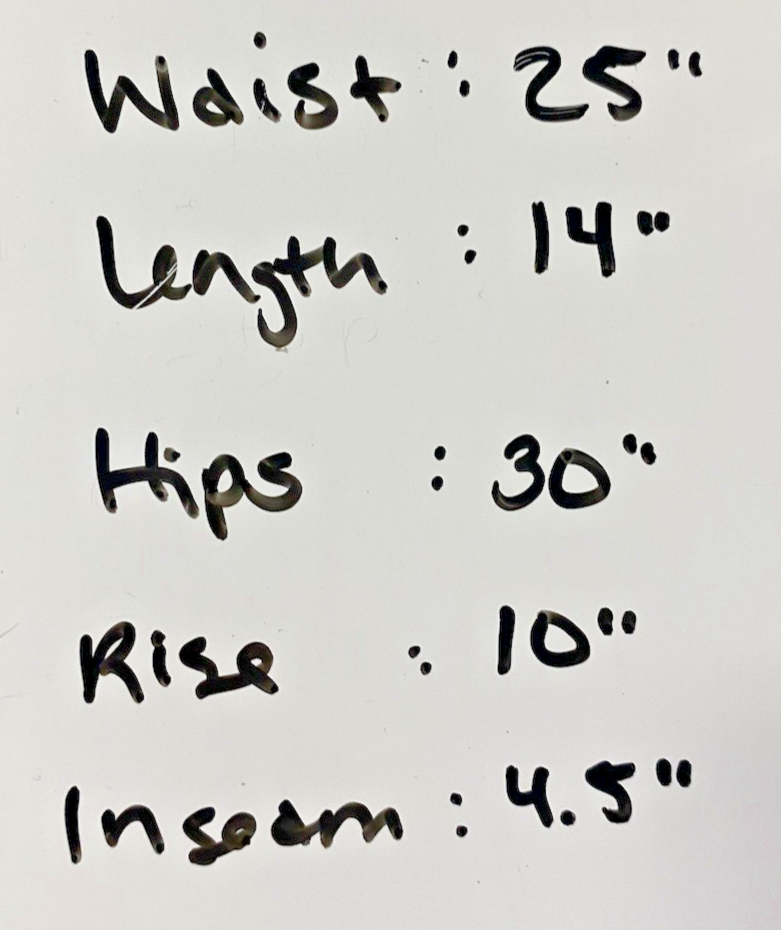 Waist : 25"
Length : 14"
Hips : 30"
Rise : 10"
Inseam : 4.5"